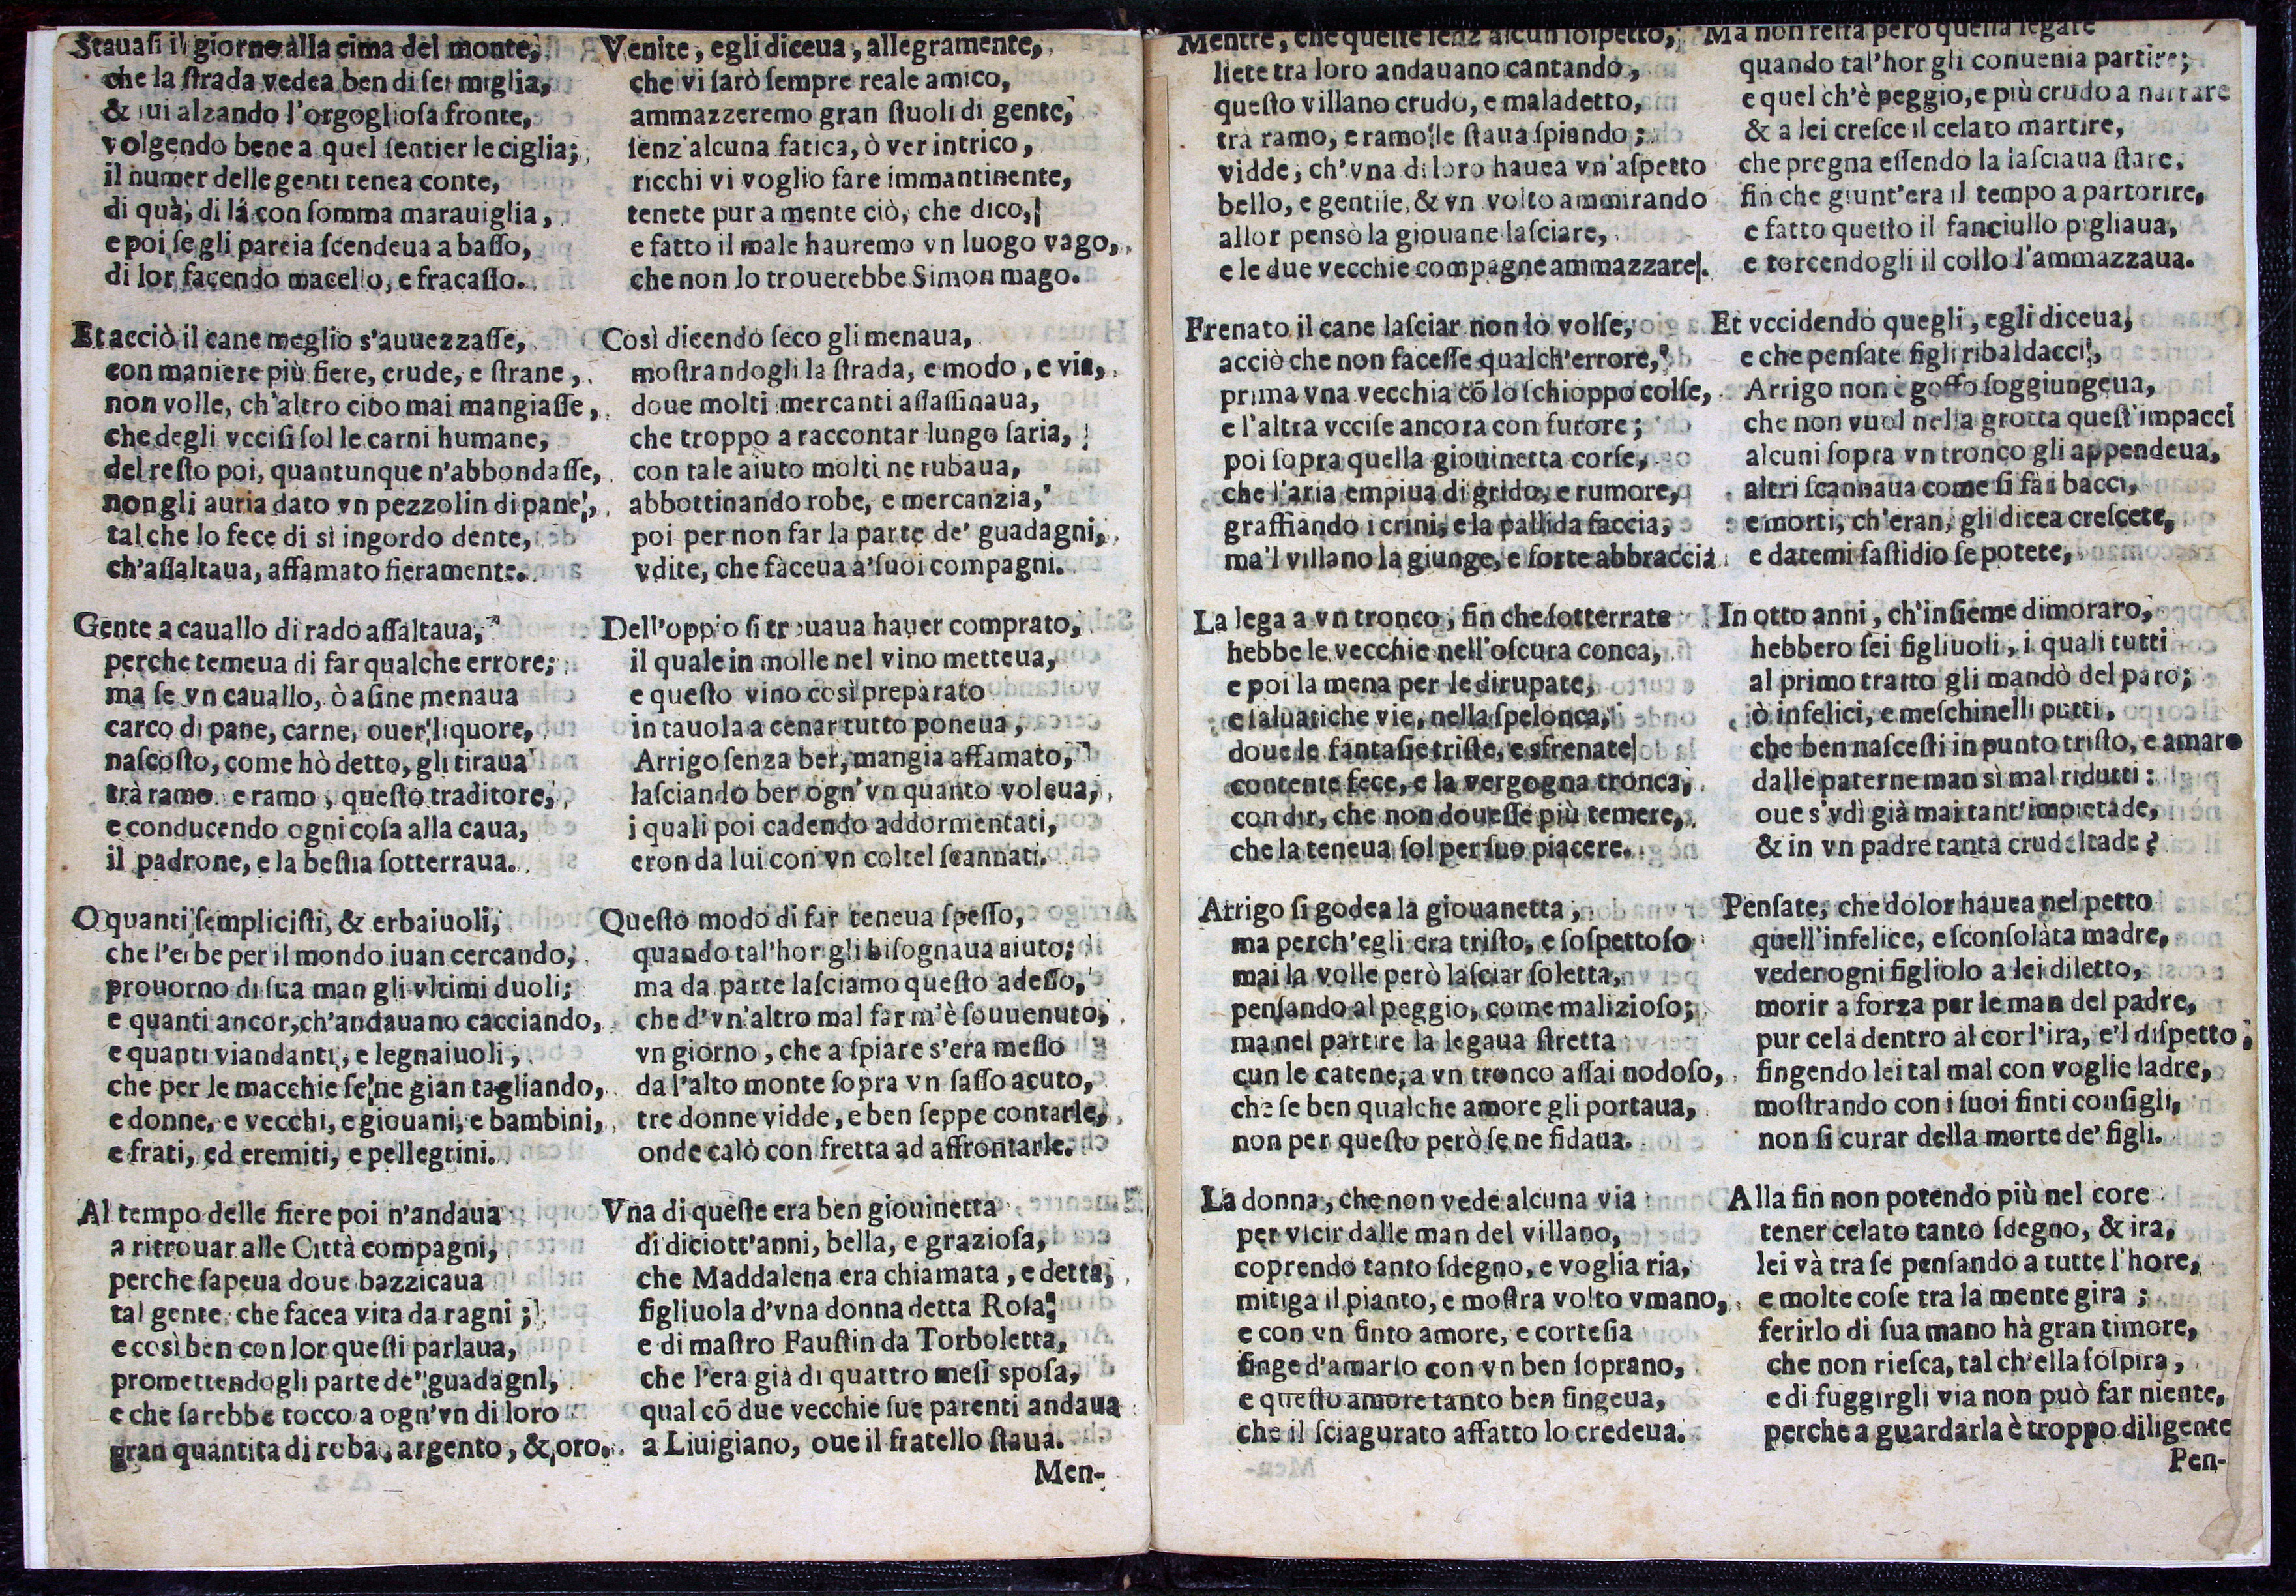 Stauaſi il giorno alla cima del monte,
che la ſtrada vedea ben di ſei miglia,
& iui alzando l'orgoglioſa fronte,
volgendo bene a quel ſentier le ciglia;
il numer delle genti tenea conte,
di quà, di lá con ſomma marauiglia,
e poi ſe gli pareia ſcendeua a baſſo,
di lor facendo macello, e fracaſſo.
Et acciò il cane meglio s'auuezzaſſe,
con maniere più fiere, crude, e ſtrane,
non volle, ch'altro cibo mai mangiaſſe,
che degli vcciſi ſol le carni humane,
del reſto poi, quantunque n'abbondaſſe,
non gli auria dato vn pezzolin di pane,
tal che lo fece di sì ingordo dente,
ch'aſſaltaua, affamato fieramente.
Gente a cauallo di rado aſſaltaua,
perche temeua di far qualche errore;
ma ſe vn cauallo, ò aſine menaua
carco di pane, carne, ouer liquore,
naſcoſto, come hò detto, gli tiraua
trà ramo e ramo, queſto traditore,
e conducendo ogni coſa alla caua,
il padrone, e la beſtia ſotterraua.
O quanti ſempliciſti, & erbaiuoli,
che l'erbe per il mondo iuan cercando,
prouorno di ſua man gli vltimi duoli;
e quanti ancor, ch'andauano cacciando,
e quanti viandanti, e legnaiuoli,
che per le macchie ſe ne gian tagliando,
e donne, e vecchi, e giouani, e bambini,
e frati, ed eremiti, e pellegrini.
Al tempo delle fiere poi n'andaua
a ritrouar alle Città compagni,
perche ſapeua doue bazzicaua
tal gente, che facea vita da ragni;
e così ben con lor queſti parlaua,
promettendogli parte de' guadagni,
e che ſarebbe tocco a ogn'vn di loro
gran quantita di roba, argento, & oro.
Venite, egli diceua, allegramente,
che vi ſarò ſempre reale amico,
ammazzeremo gran ſtuoli di gente,
ſenz'alcuna fatica, ò ver intrico,
ricchi vi voglio fare immantinente,
tenete pur a mente ciò, che dico,
e fatto il male hauremo vn luogo vago,
che non lo trouerebbe Simon mago.
Così dicendo ſeco gli menaua,
moſtrandogli la ſtrada, e modo, e via,
doue molti mercanti aſſaſſinaua,
che troppo a raccontar lungo ſaria,
con tale aiuto molti ne rubaua,
abbottinando robe, e mercanzia,
poi per non far la parte de' guadagni,
vdite, che faceua a' ſuoi compagni.
Dell'oppio ſi trouaua hauer comprato,
il quale in molle nel vino metteua,
e queſto vino così preparato
in tauola a cenar tutto poneua,
Arrigo ſenza ber, mangia affamato,
laſciando ber ogn'vn quanto voleua,
i quali poi cadendo addormentati,
eron da lui con vn coltel ſcannati.
Queſto modo di far teneua ſpeſſo,
quando tal'hor gli biſognaua aiuto;
ma da parte laſciamo queſto adeſſo,
che d'vn'altro mal far m'è ſouuenuto,
vn giorno, che a ſpiare s'era meſſo
da l'alto monte ſopra vn ſaſſo acuto,
tre donne vidde, e ben ſeppe contarle,
onde calò con fretta ad affrontarle.
Vna di queſte era ben giouinetta
di diciott'anni, bella, e grazioſa,
che Maddalena era chiamata, e detta,
figliuola d'vna donna detta Roſa,
e di maſtro Fauſtin da Torboletta,
che l'era già di quattro meſi ſpoſa,
qual cõ due vecchie ſue parenti andaua
a Liuigiano, oue il fratello ſtaua.
Men-
Mentre, che queſte ſenz'alcun ſoſpetto,
liete tra loro andauano cantando,
queſto villano crudo, e maladetto,
tra ramo, e ramo le ſtaua ſpiando;
vidde, ch'vna di loro hauea vn'aſpetto
bello, e gentile, & vn volto ammirando
allor pensò la giouane laſciare,
e le due vecchie compagne ammazzare.
Frenato il cane laſciar non lo volſe,
acciò che non faceſſe qualch'errore,
prima vna vecchia cõ lo ſchioppo colſe,
e l'altra vcciſe ancora con furore;
poi ſopra quella giouinetta corſe,
che l'aria empiua di grido, e rumore,
graffiando i crini, e la pallida faccia,
ma'l villano la giunge, e forte abbraccia
La lega a vn tronco, fin che ſotterrate
hebbe le vecchie nell'oſcura conca,
e poi la mena per le dirupate,
e ſaluatiche vie, nella ſpelonca,
doue le fantaſie triſte, e sfrenate
contente fece, e la vergogna tronca,
con dir, che non doueſſe più temere,
che la teneua ſol per ſuo piacere.
Arrigo ſi godea la giouanetta,
ma perch'egli era triſto, e ſoſpettoſo
mai la volle però laſciar ſoletta,
penſando al peggio, come malizioſo;
ma nel partire la legaua ſtretta
cun le catene, a vn tronco aſſai nodoſo,
che ſe ben qualche amore gli portaua,
non per queſto però ſe ne fidaua.
La donna, che non vede alcuna via
per vſcir dalle man del villano,
coprendo tanto ſdegno, e voglia ria,
mitiga il pianto, e moſtra volto vmano,
e con vn finto amore, e corteſia
finge d'amarlo con vn ben ſoprano,
e queſto amore tanto ben fingeua,
che il ſciagurato affatto lo credeua.
Ma non reſta però quella legare
quando tal'hor gli conuenia partire;
e quel ch'è peggio, e più crudo a narrare
& a lei creſce il celato martire,
che pregna eſſendo la laſciaua ſtare,
fin che giunt'era il tempo a partorire,
e fatto queſto il fanciullo pigliaua,
e torcendogli il collo l'ammazzaua.
Et vccidendo quegli, egli diceua,
e che penſate figli ribaldacci,
Arrigo non è goffo ſoggiungeua,
che non vuol nella grotta queſt'impacci
alcuni ſopra vn tronco gli appendeua,
altri ſcannaua come ſi fa i bacci,
e morti, ch'eran, gli dicea creſcete,
e datemi faſtidio ſe potete,
In otto anni, ch'inſieme dimoraro,
hebbero ſei figliuoli, i quali tutti
al primo tratto gli mandò del paro;
ò infelici, e meſchinelli putti,
che ben naſceſti in punto triſto, e amaro
dalle paterne man sì mal ridutti:
oue s'vdì già mai tant'impietade,
& in vn padre tanta crudeltade?
Penſate, che dolor hauea nel petto
quell'infelice, e ſconſolata madre,
veder ogni figliolo a lei diletto,
morir a forza per le man del padre,
pur cela dentro al cor l'ira, e'l diſpetto,
fingendo lei tal mal con voglie ladre,
moſtrando con i ſuoi finti conſigli,
non ſi curar della morte de' figli.
Alla fin non potendo più nel core
tener celato tanto ſdegno, & ira,
lei và tra ſe penſando a tutte l'hore,
e molte coſe tra la mente gira;
ferirlo di ſua mano hà gran timore,
che non rieſca, tal ch'ella ſoſpira,
e di fuggirgli via non può far niente,
perche a guardarla è troppo diligente
Pen-